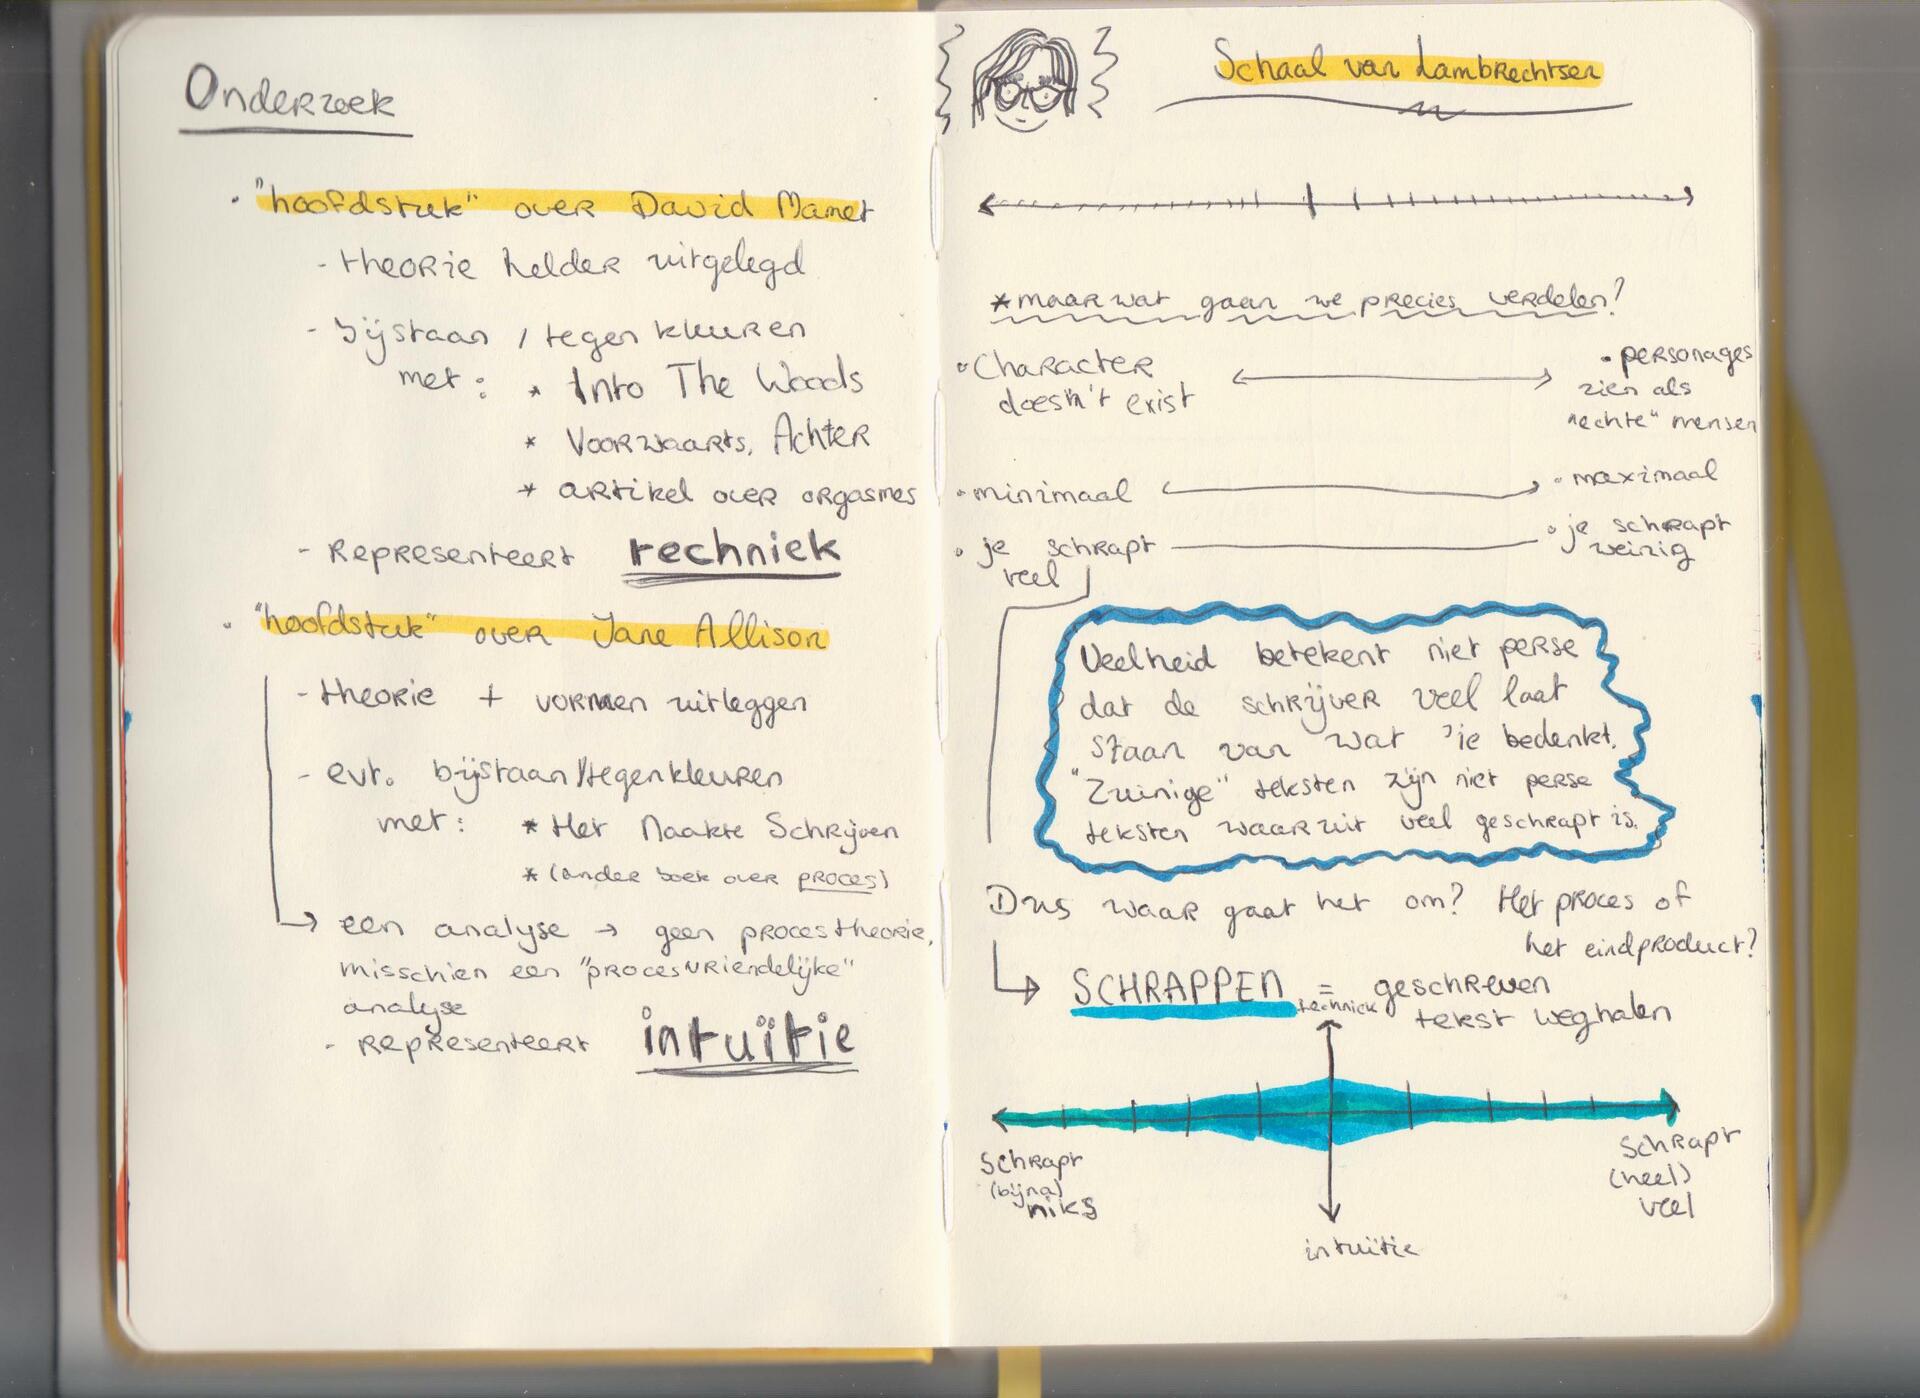 Onderzoek
· "hoofdstuk" over David Mamet
- theorie helder uitgelegd
- bijstaan / tegenkleuren
met: * Into The Woods
* Voorwaarts, Achter
* artikel over orgasmes
- Representeert techniek
· "hoofdstuk" over Jane Allison
- theorie + vormen uitleggen
- evt. bijstaan/tegenkleuren
met: * Het Naakte Schrijven
* (ander boek over proces)
→ een analyse → geen procestheorie,
misschien een "procesvriendelijke"
analyse
- representeert intuïtie
Schaal van Lambrechtsen
* maar wat gaan we precies verdelen?
· Character
doesn't exist
· personages
zien als
"echte" mensen
· minimaal
· maximaal
· je schrapt
veel
· je schrapt
weinig
Veelheid betekent niet perse
dat de schrijver veel laat
staan van wat 'ie bedenkt.
"Zuinige" teksten zijn niet perse
teksten waaruit veel geschrapt is.
Dus waar gaat het om? Het proces of
het eindproduct?
→ SCHRAPPEN = geschreven
tekst weghalen
techniek
schrapt
(bijna)
niks
schrapt
(heel)
veel
intuïtie